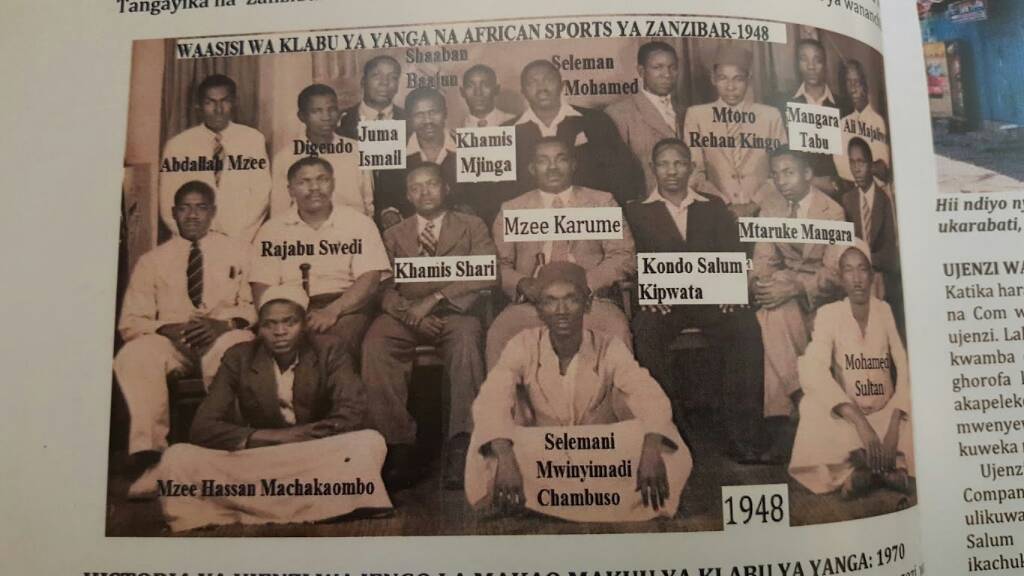 Tangayika na Zanzibar
ya wananchi
WAASISI WA KLABU YA YANGA NA AFRICAN SPORTS YA ZANZIBAR-1948
Shaaban
Seleman
Mohamed
Abdallah Mzee
Digendo
Juma
Ismail
Khamis
Mjinga
Mtoro
Rehan Kingo
Mangara
Tabu
Ali
Rajabu Swedi
Khamis Shari
Mzee Karume
Kondo Salum
Kipwata
Mtaruke Mangara
Mohamed
Sultan
Mzee Hassan Machakaombo
Selemani
Mwinyimadi
Chambuso
1948
YA KLABU YA YANGA: 1970
Hii ndiyo
ukarabati,
UJENZI WA
Katika
na Com
ujenzi.
kwamba
ghorofa
akapeleke
mwenyew
kuweka
Ujenz
Compan
ulikuwa
Salum
ikachuk